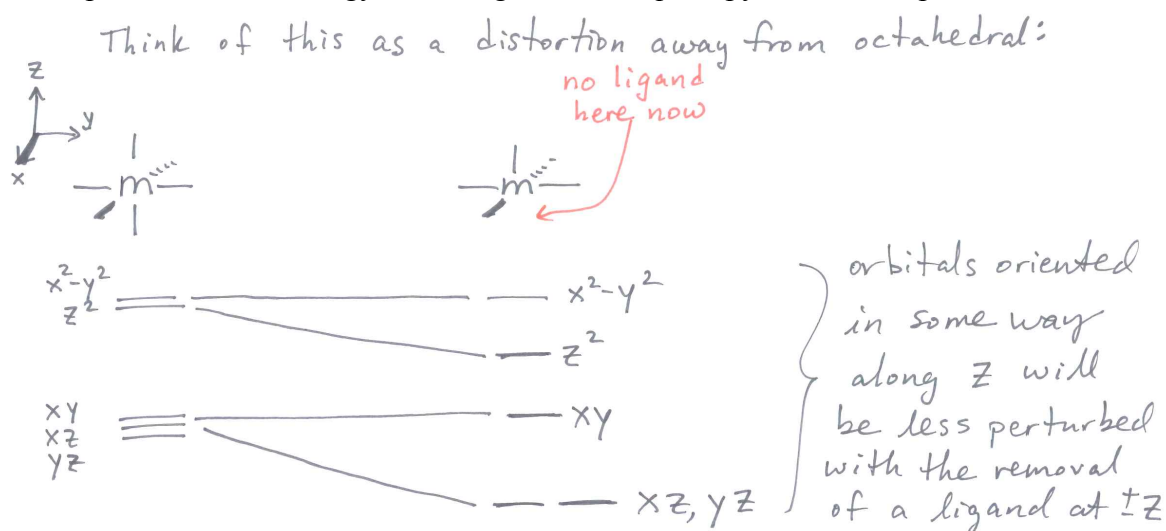 Think of this as a distortion away from octahedral:
no ligand
here now
z
y
x
m
m
x²-y²
z²
x²-y²
z²
xy
xz
yz
xy
xz, yz
orbitals oriented
in some way
along z will
be less perturbed
with the removal
of a ligand at ±z